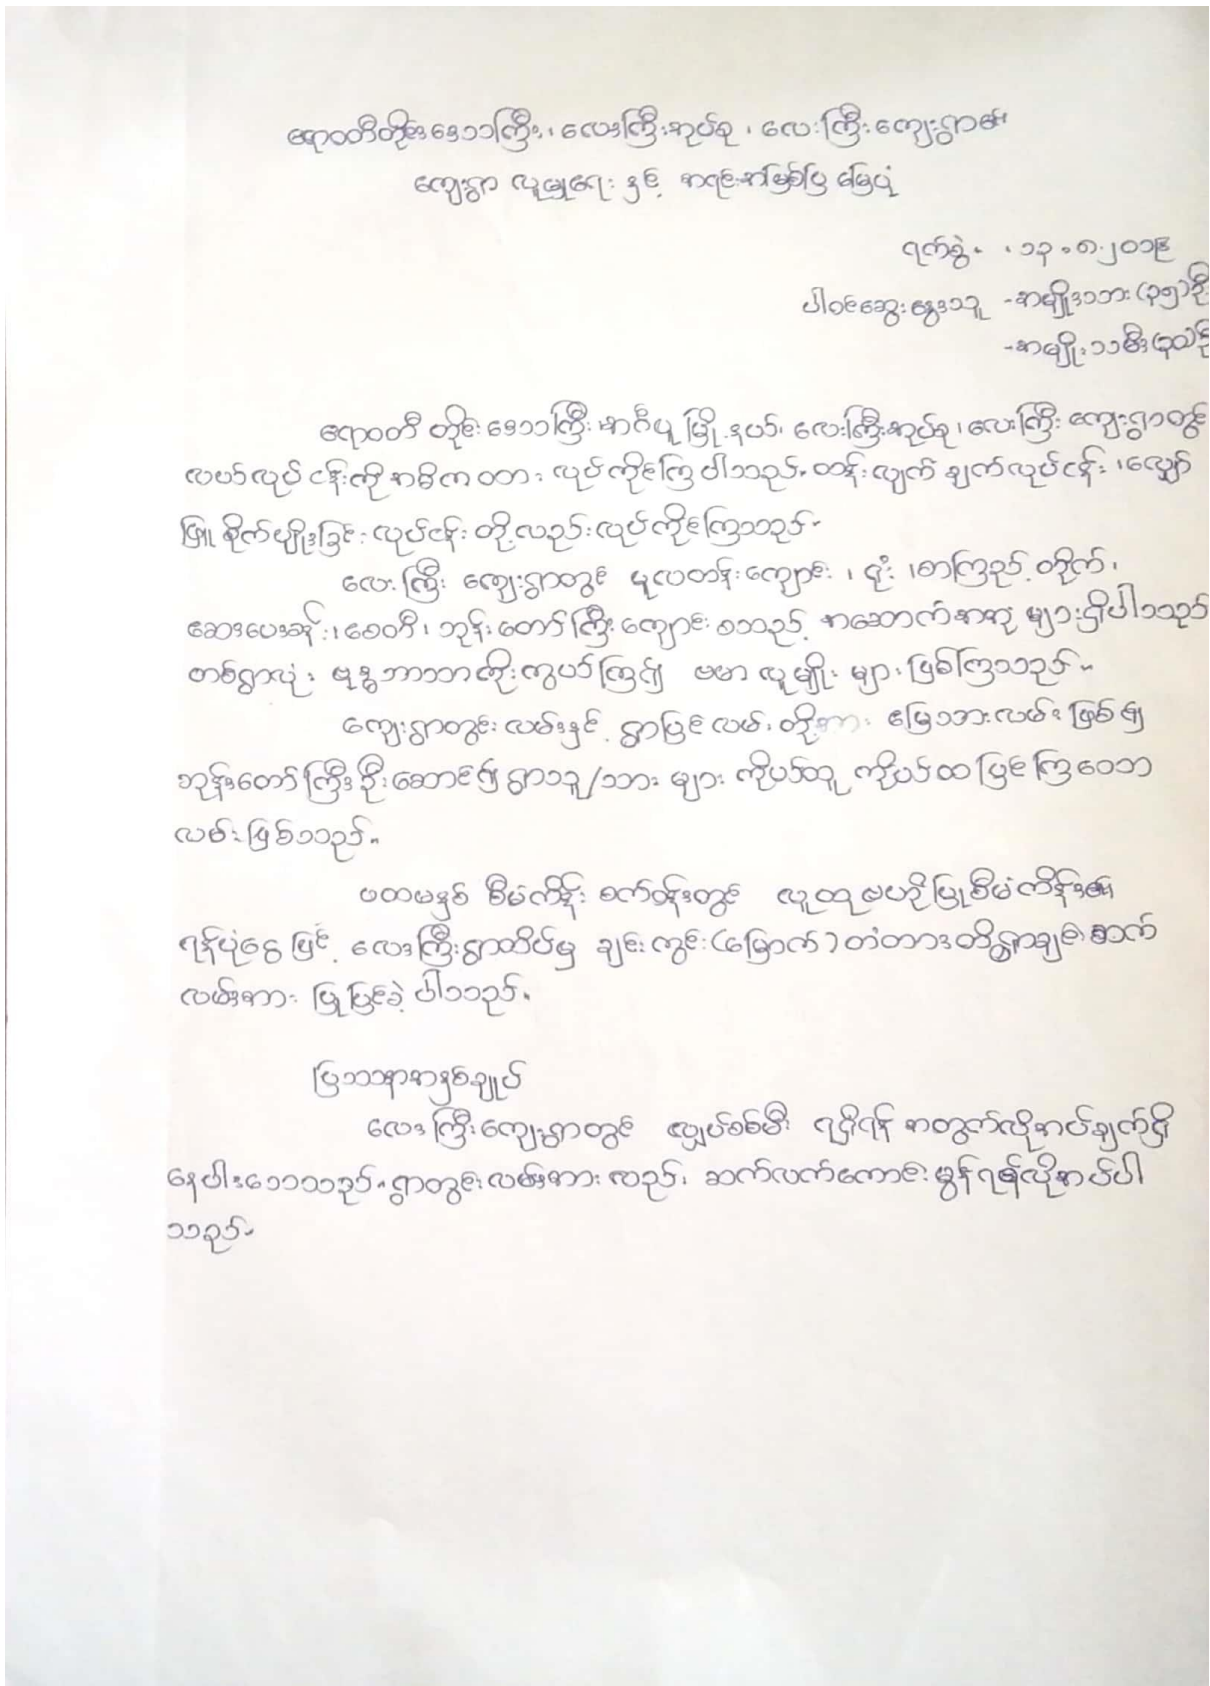 ဧရာဝတီတိုင်းဒေသကြီး၊ လေးကြီးအုပ်စု၊ လေးကြီးကျေးရွာ၏
ကျေးရွာ လူမှုရေး နှင့် အရင်းအမြစ်ပြ မြေပုံ
ရက်စွဲ - ၁၃.၈.၂၀၁၉
ပါဝင်ဆွေးနွေးသူ - အမျိုးသား (၃၅) ဦး
- အမျိုးသမီး (၃၀) ဦး
ဧရာဝတီ တိုင်းဒေသကြီး အင်္ဂပူ မြို့နယ်၊ လေးကြီးအုပ်စု၊ လေးကြီး ကျေးရွာတွင်
လယ်လုပ်ငန်းကို အဓိကထား လုပ်ကိုင်ကြပါသည်။ တန်းလျက် ချက်လုပ်ငန်း၊ လျှော်
ဖြူ စိုက်ပျိုးခြင်း လုပ်ငန်း တို့လည်း လုပ်ကိုင်ကြသည်။
လေးကြီး ကျေးရွာတွင် မူလတန်းကျောင်း၊ ရုံး၊ စာကြည့်တိုက်၊
ဆေးပေးခန်း၊ စေတီ၊ ဘုန်းတော်ကြီးကျောင်း စသည့် အဆောက်အအုံ များရှိပါသည်
တစ်ရွာလုံး ဗုဒ္ဓဘာသာကိုးကွယ်ကြ၍ ဗမာလူမျိုး များဖြစ်ကြသည်။
ကျေးရွာတွင်းလမ်းနှင့် ရွာပြင်လမ်း တို့အား မြေသားလမ်း ဖြစ်၍
ဘုန်းတော်ကြီးဦးဆောင်၍ ရွာသူ/သား များ ကိုယ်ထူကိုယ်ထ ပြင်ကြသော
လမ်းဖြစ်သည်။
ပထမနှစ် စီမံကိန်း စက်ဝန်းတွင် လူထုဗဟိုပြုစီမံကိန်း၏
ရန်ပုံငွေဖြင့် လေးကြီးရွာထိပ်မှ ချင်းကွင်း (မြောက်) တံတားထိရွာချင်းဆက်
လမ်းအား ပြုပြင်ခဲ့ပါသည်။
ပြဿနာအနှစ်ချုပ်
လေးကြီးကျေးရွာတွင် လျှပ်စစ်မီး ရရှိရန် အတွက်လိုအပ်ချက်ရှိ
နေပါသေးသည်။ ရွာတွင်းလမ်းအားလည်း ဆက်လက်ကောင်းမွန်ရန်လိုအပ်ပါ
သည်။